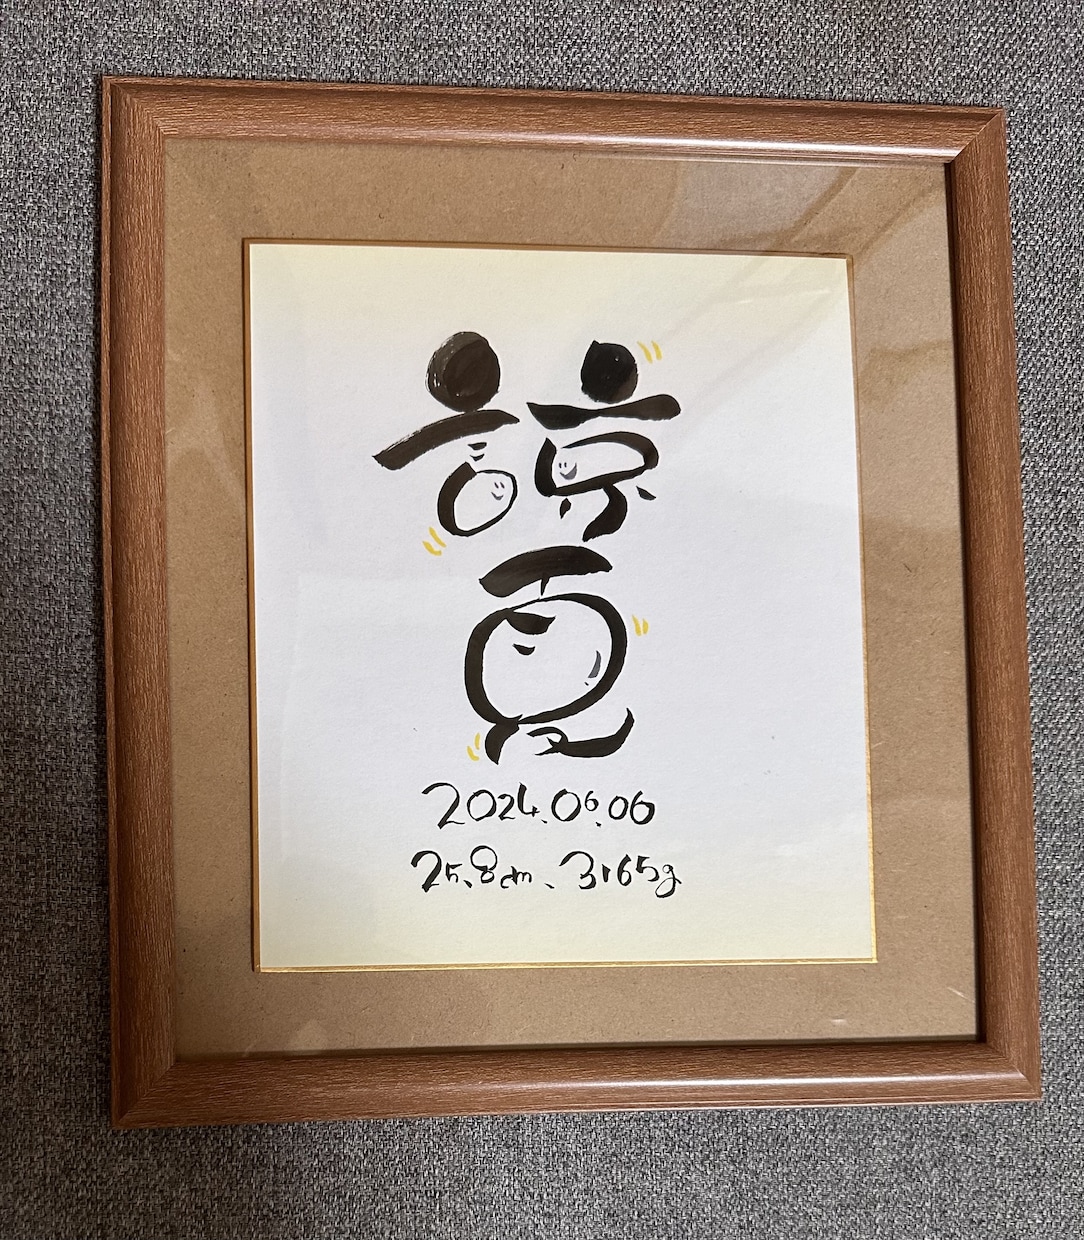 諒
夏
2024.06.06
25.8cm、3165g